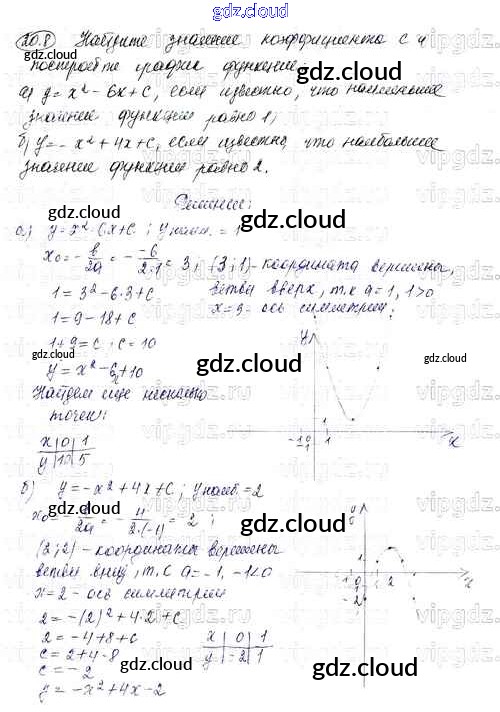 gdz.cloud
20.8 Найдите значение коэффициента c и
постройте график функции:
а) y = x² - 6x + c, если известно, что наименьшее
значение функции равно 1;
б) y = - x² + 4x + c, если известно, что наибольшее
значение функции равно 2.
Решение:
а) y = x² - 6x + c ; y наим. = 1
x₀ = - b/2a = - -6/2·1 = 3; (3; 1) - координата вершины,
ветви вверх, т.к a = 1, 1>0
1 = 3² - 6·3 + c
x = 3 - ось симметрии;
1 = 9 - 18 + c
1 + 9 = c ; c = 10
y = x² - 6x + 10
Найдем еще несколько
точек:
x | 0 | 1
y | 10 | 5
y
1
-1 0 1
x
б) y = -x² + 4x + c ; y наиб. = 2
x₀ = - b/2a = - 4/2·(-1) = 2 ;
(2; 2) - координаты вершины
ветви вниз, т.к a = -1, -1<0
x = 2 - ось симметрии
2 = -(2)² + 4·2 + c
2 = -4 + 8 + c
c = 2 + 4 - 8
c = -2
y = -x² + 4x - 2
x | 0 | 1
y | -2 | 1
y
1
-1 1 2
-1
-2
x
gdz.cloud